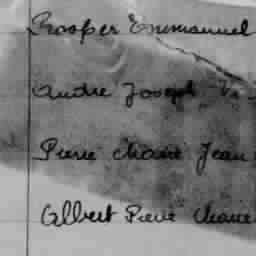 Prosper Emmanuel
André Joseph V.
Pierre Marie Jean
Albert Pierre Marie